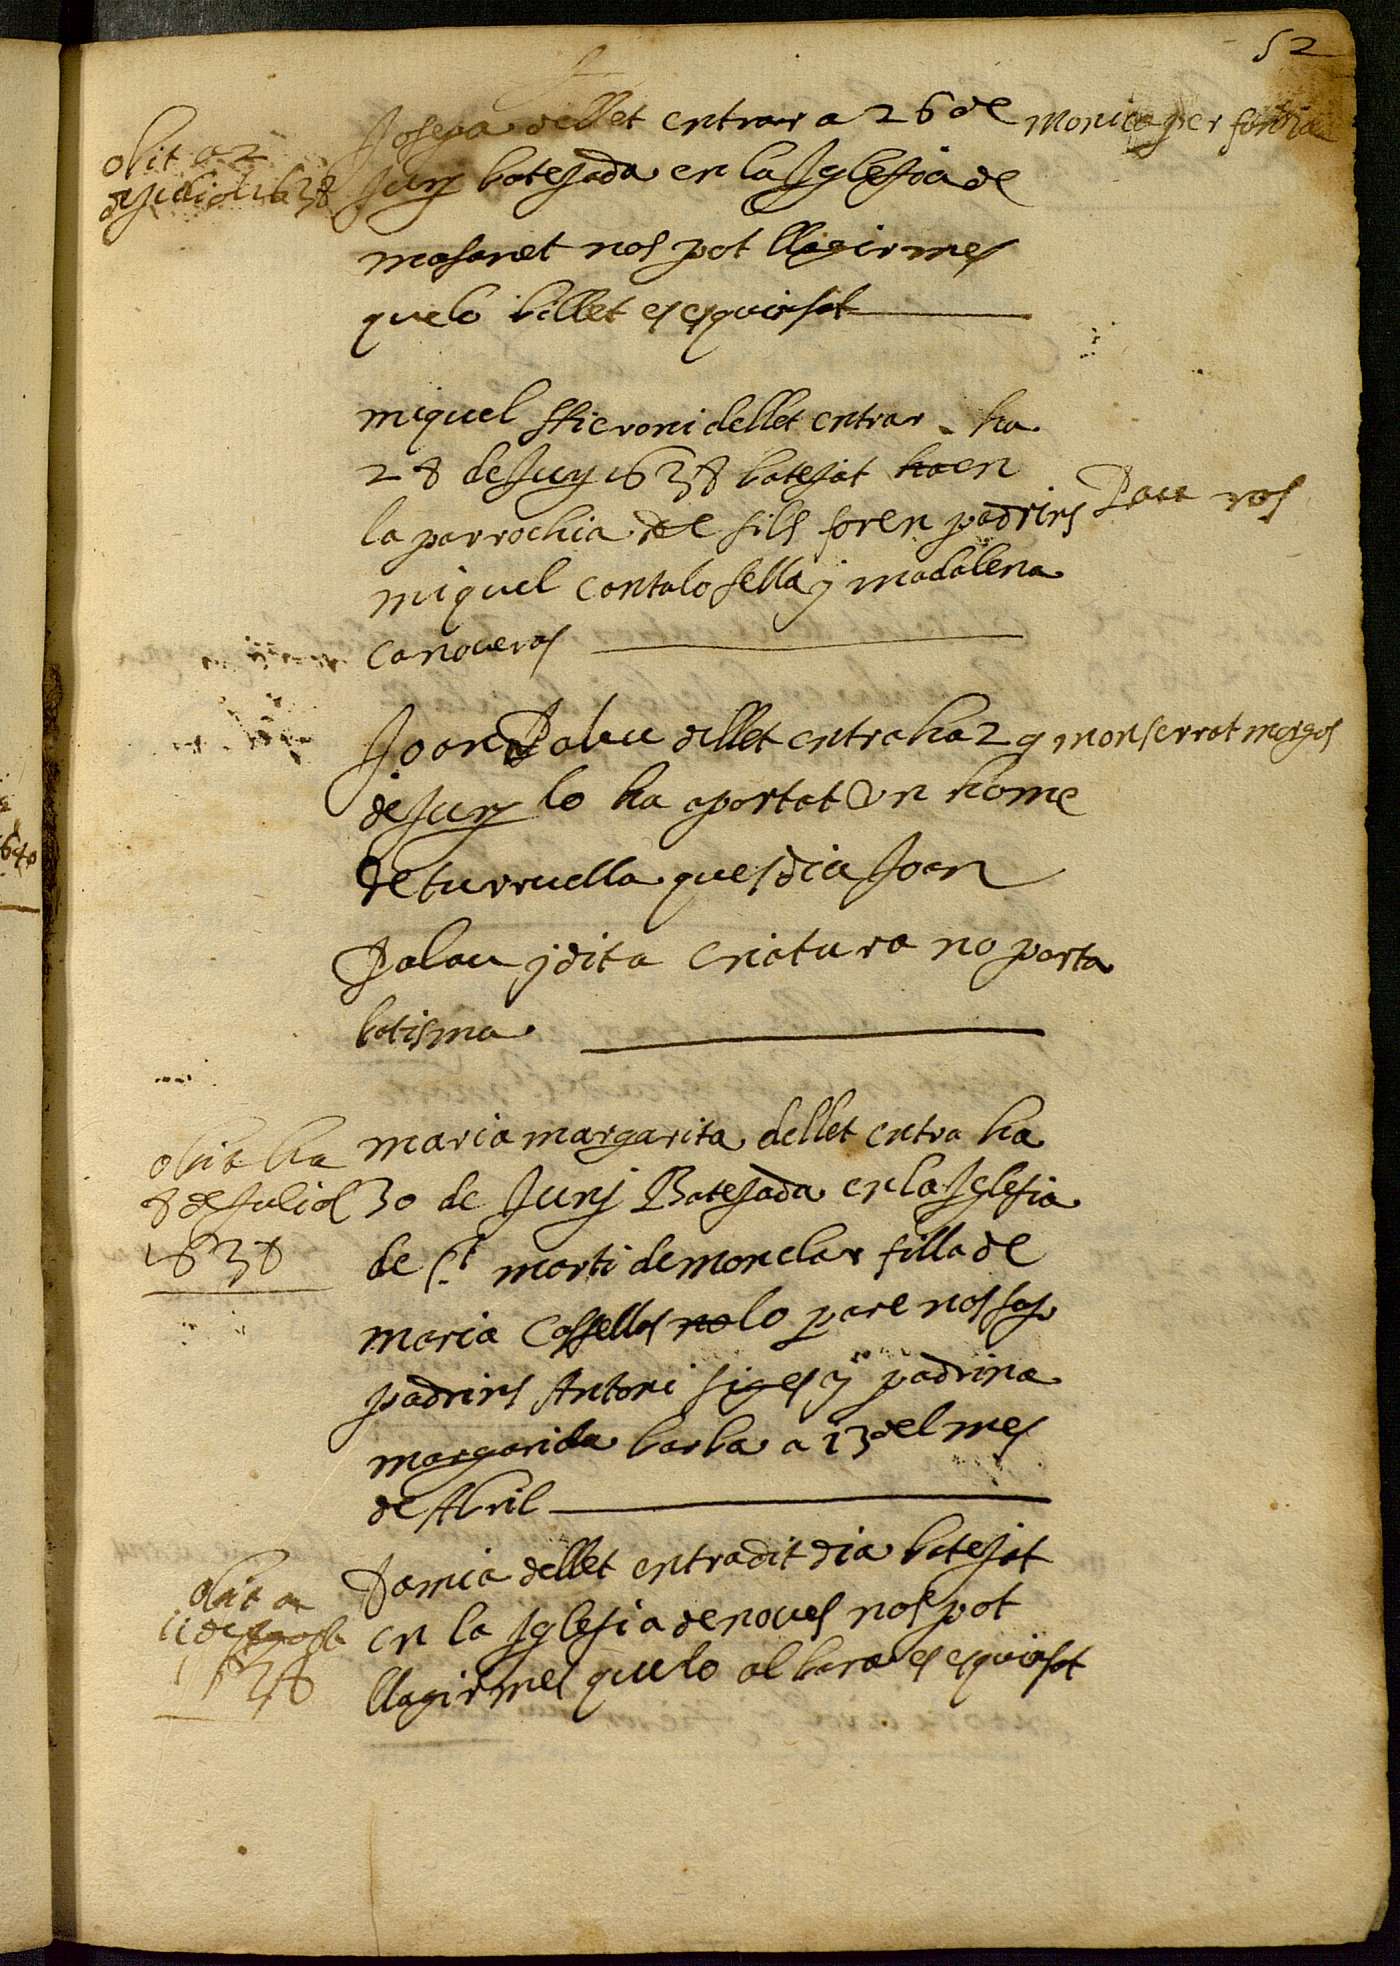 52
obit a 2
de juliol 1638
Josepa dellet entrar a 26 de
Juny batejada en la Iglesia de
masanet nos pot llagir mes
que lo billet es esquinsat
monica per
miquel Hieroni dellet entrar ha
28 de Juny 1638 batejat ha en
la parrochia de sils foren padrins
miquel cantalosella y madalena
canoveras
Pau ros
Joan Palau dellet entra ha 29
de Juny lo ha aportat un home
de turruella ques dia Joan
Palau y dita criatura no porta
batisma
monserrat morgas
obit ha
8 de Juliol
1638
maria margarita dellet entra ha
30 de Juny Batejada en la Iglesia
de St marti de monclar filla de
maria Cassellas no lo pare nos sap
padrins Antoni siges y padrina
margarida barba a 13 del mes
de Abril
obit a
11 de Agost
1638
Damia dellet entra dit dia batejat
en la Iglesia de noves nos pot
llagir mes que lo albara es esquinsat